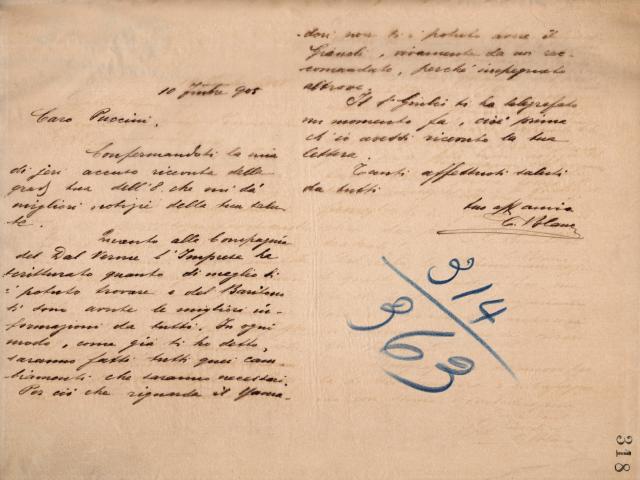 10 9mbre 905
Caro Puccini,
Confermandoti la mia
di jeri accuso ricevuta della
grad tua dell'8. che mi dà
migliori notizie della tua salu-
te.
Inquanto alla Compagnia
del Dal Verme l'Impresa ha
scritturato quanto di meglio si
è potuto trovare e del Baritono
si sono avute le migliori in-
formazioni da tutti. In ogni
modo, come già ti ho detto,
saranno fatti tutti quei cam-
biamenti che saranno necessari.
Per ciò che riguarda il
dori non si è potuto avere il
vivamente da noi rac-
comandato, perchè impegnato
altrove.
Il Sr Giulio ti ha telegrafato
un momento fa, cioè prima
ch'io avessi ricevuto la tua
lettera.
Tanti affettuosi saluti
da tutti
tuo aff amico
C. Blanc
314
363
318